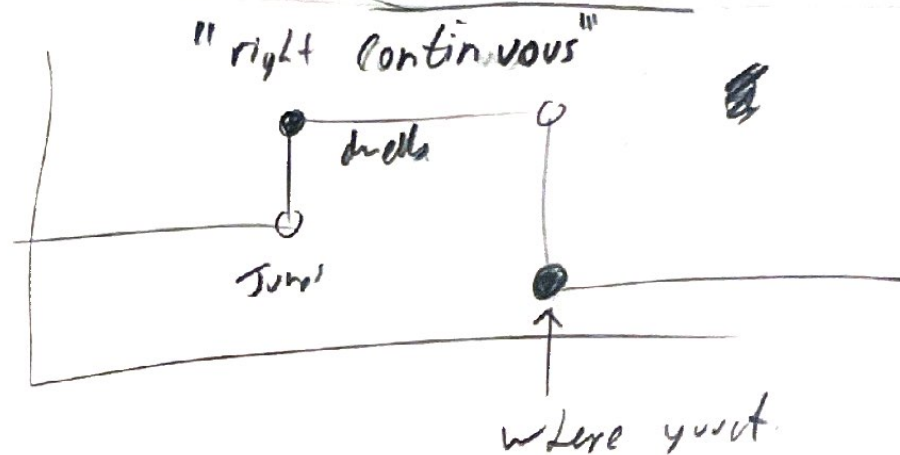 "right continuous"
dwells
Jump
where